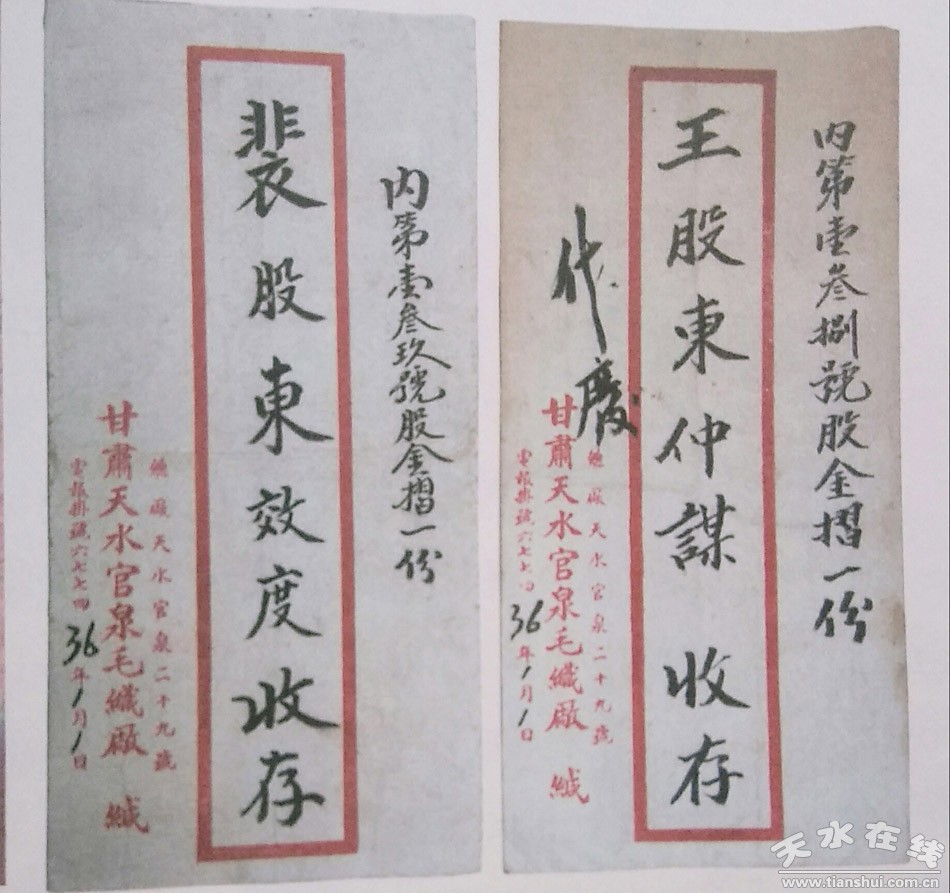 內第壹叁玖號股金摺一份
裴股東效度收存
總廠天水官泉二十九號
甘肅天水官泉毛織廠 緘
電報掛號六七七四 36年1月1日
內第壹叁捌號股金摺一份
王股東仲謀 收存
代慶
總廠天水官泉二十九號
甘肅天水官泉毛織廠 緘
電報掛號六七七四 36年1月1日
天水在线
www.tianshui.com.cn